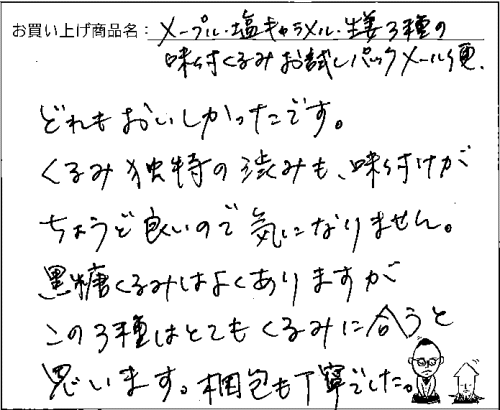 お買い上げ商品名：メープル・塩キャラメル・生姜3種の
味付くるみお試しパックメール便.
どれもおいしかったです。
くるみ独特の渋みも、味付けが
ちょうど良いので気になりません。
黒糖くるみはよくありますが
この3種はとてもくるみに合うと
思います。梱包も丁寧でした。